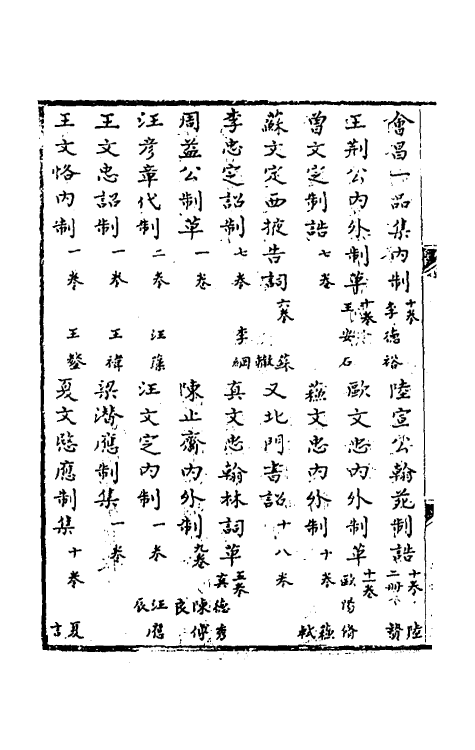 會昌一品集內制十卷李德裕　陸宣公翰苑制誥十卷二冊陸贄
王荆公內外制草十卷王安石　歐文忠內外制草十一卷歐陽脩
曾文定制誥七卷　蘇文忠內外制十卷蘇軾
蘇文定西掖告詞六卷蘇轍　又北門書詔十八卷
李忠定詔制七卷李綱　真文忠翰林詞草五卷真德秀
周益公制草一卷　陳止齋內外制九卷陳傅良
汪彦章代制二卷汪藻　汪文定內制一卷汪應辰
王文忠詔制一卷王禕　梁潛應制集一卷
王文恪內制一卷王鏊　夏文愍應制集十卷夏言